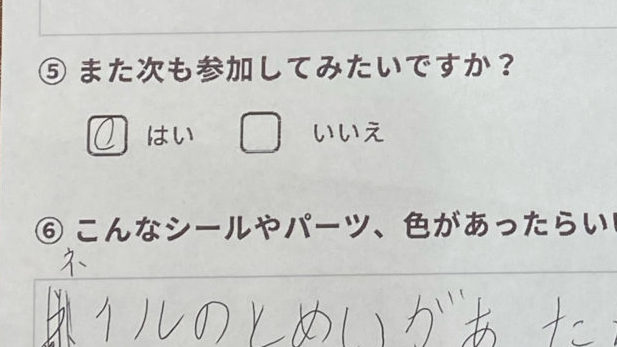 ⑤ また次も参加してみたいですか？
はい いいえ
⑥ こんなシールやパーツ、色があったらいい
ネイルのとめいがあ